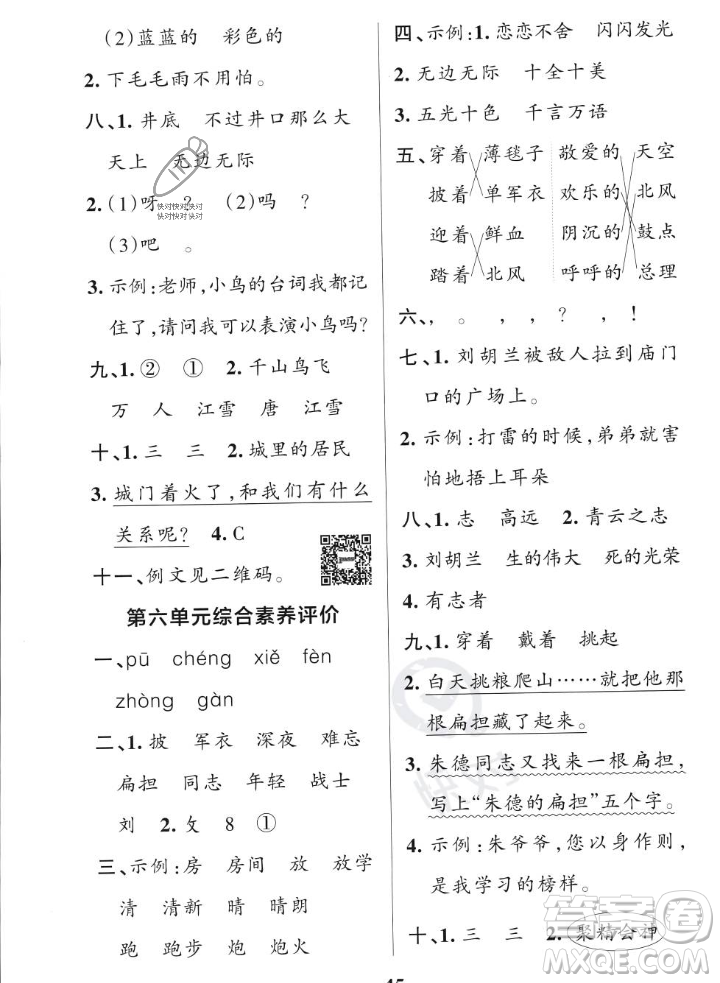 (2)蓝蓝的 彩色的
2. 下毛毛雨不用怕。
八、1. 井底 不过井口那么大
天上 无边无际
2. (1)呀 ? (2)吗 ?
(3)吧 。
快对快对快对
快对快对快对
3. 示例:老师,小鸟的台词我都记
住了,请问我可以表演小鸟吗?
九、1. ② ① 2. 千山鸟飞
万 人 江雪 唐 江雪
十、1. 三 三 2. 城里的居民
3. 城门着火了,和我们有什么
关系呢? 4. C
十一、例文见二维码。
第六单元综合素养评价
一、pū chéng xiě fèn
zhòng gàn
二、1. 披 军衣 深夜 难忘
扁担 同志 年轻 战士
刘 2. 攵 8 ①
三、示例:房 房间 放 放学
清 清新 晴 晴朗
跑 跑步 炮 炮火
四、示例:1. 恋恋不舍 闪闪发光
2. 无边无际 十全十美
3. 五光十色 千言万语
五、穿着 薄毯子 敬爱的 天空
披着 单军衣 欢乐的 北风
迎着 鲜血 阴沉的 鼓点
踏着 北风 呼呼的 总理
六、, 。 , , ? , !
七、1. 刘胡兰被敌人拉到庙门
口的广场上。
2. 示例:打雷的时候,弟弟就害
怕地捂上耳朵
八、1. 志 高远 2. 青云之志
3. 刘胡兰 生的伟大 死的光荣
4. 有志者
九、1. 穿着 戴着 挑起
2. 白天挑粮爬山……就把他那
根扁担藏了起来。
3. 朱德同志又找来一根扁担,
写上“朱德的扁担”五个字。
4. 示例:朱爷爷,您以身作则,
是我学习的榜样。
十、1. 三 三 2. 聚精会神
答案圈
MXQE.COM